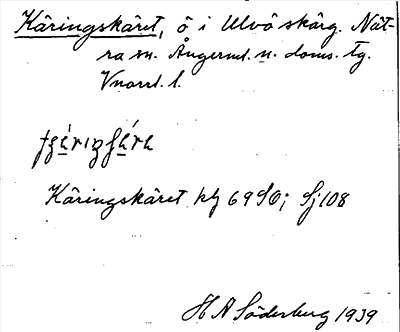 Käringskäret, ö i Ulvö skärg. Nät-
ra sn. Ångerml. n. doms. tg.
Vnorrl. l.
Käringskäret kbg 69 SO; Sj 108
H A Söderberg 1939